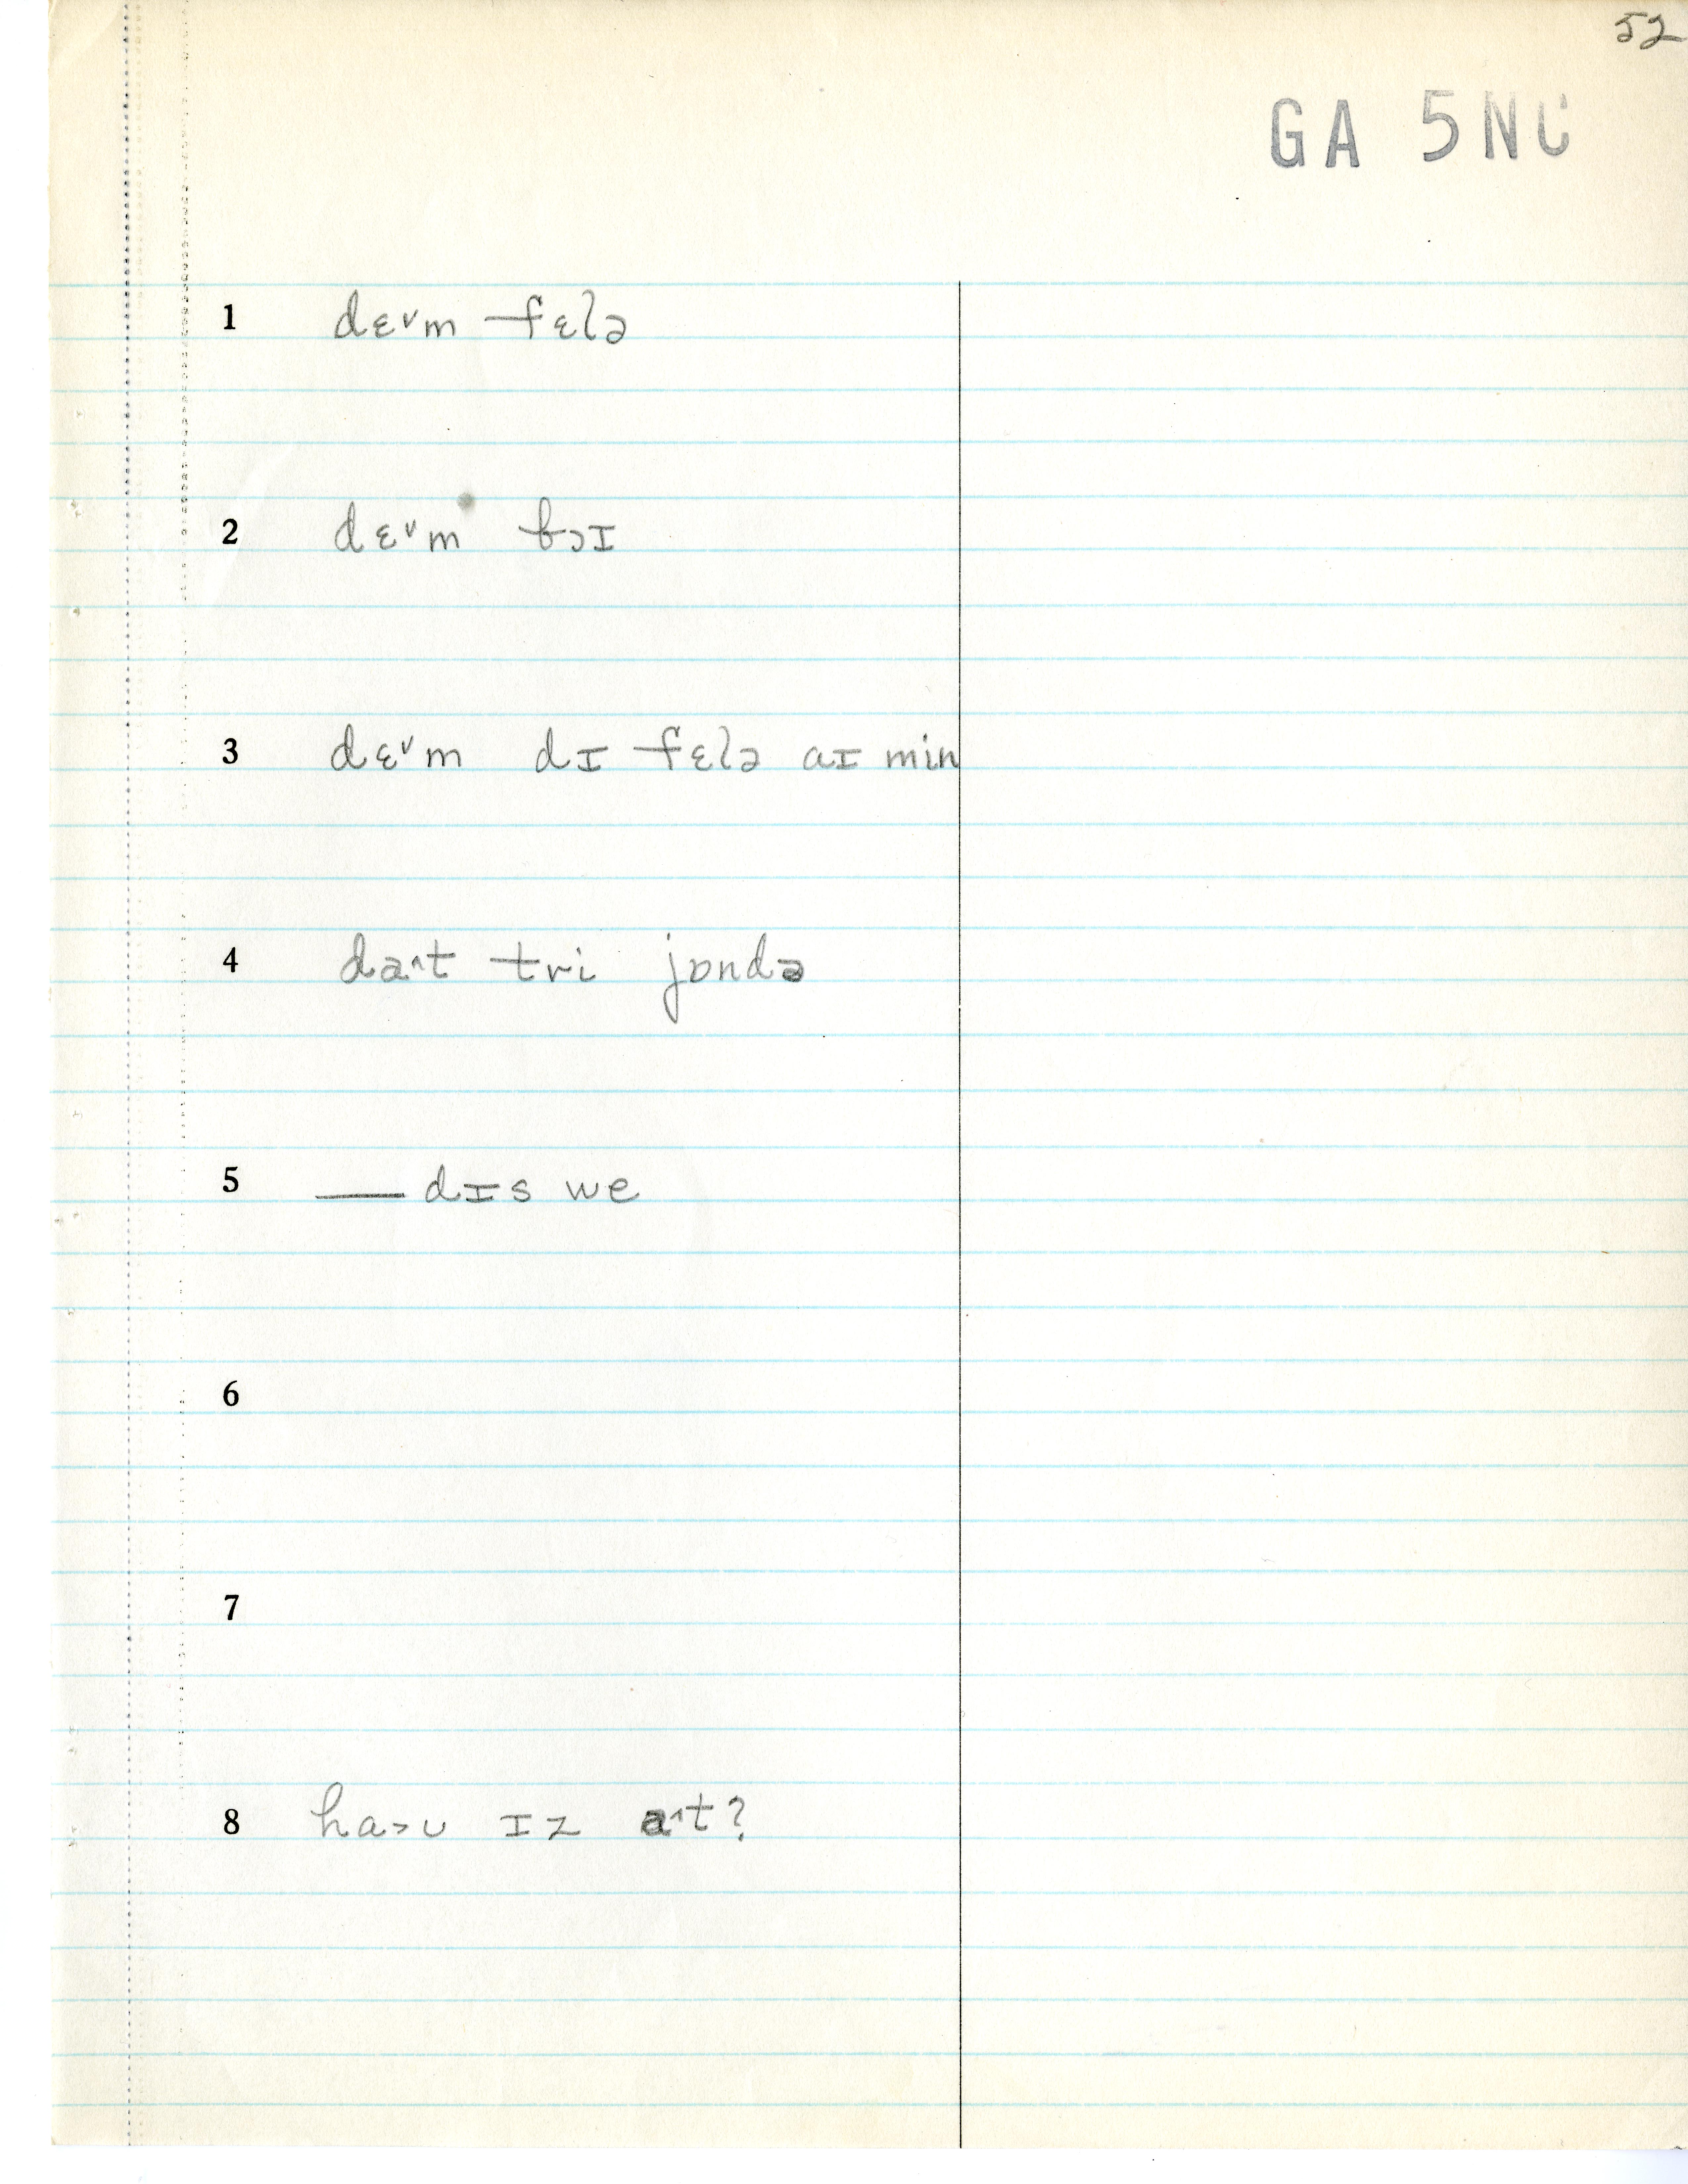 52
GA 5NC
1 dɛ˅m fɛlə
2 dɛ˅m bɔɪ
3 dɛ˅m dɪ fɛlə aɪ min
4 da˄t tri jɒndə
5 — dɪs we
6
7
8 ha˃ʊ ɪz a˄t?